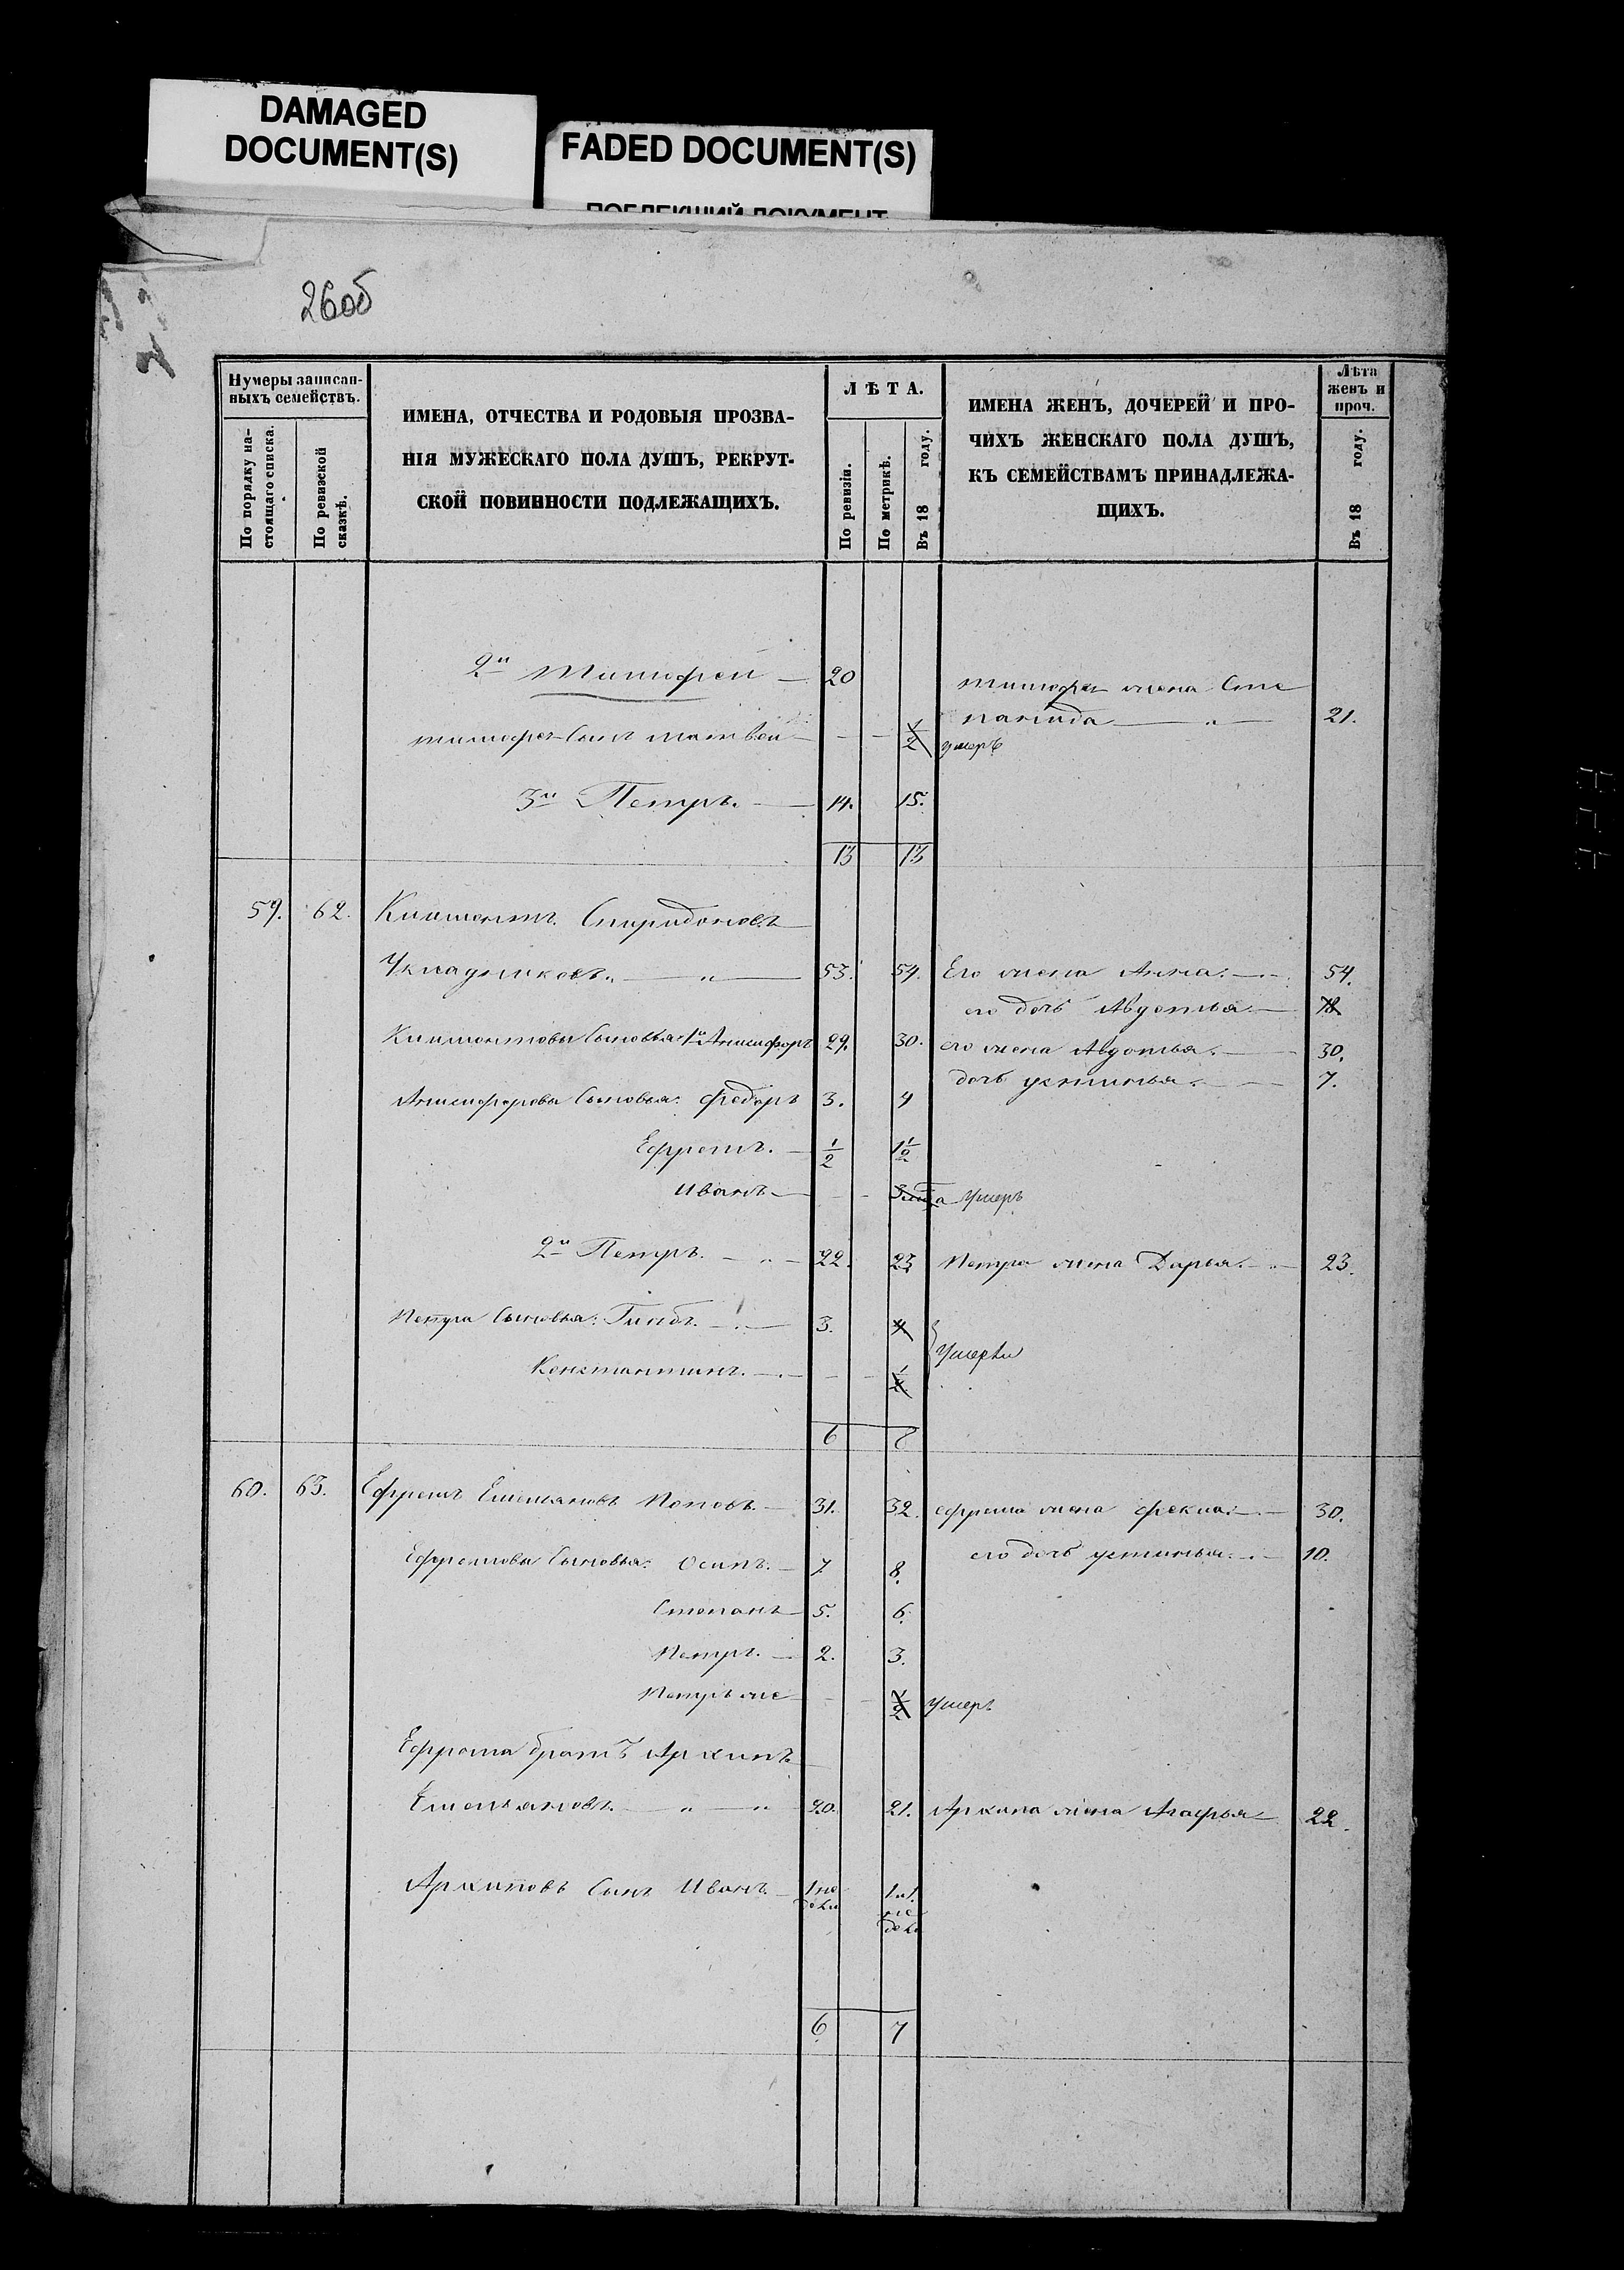 DAMAGED
DOCUMENT(S)
FADED DOCUMENT(S)
ПОБЛЕКШИЙ ДОКУМЕНТ
26об
Нумеры записан-
ныхъ семействъ.
По порядку на-
стоящаго списка.
По ревизской
сказкѣ.
ИМЕНА, ОТЧЕСТВА И РОДОВЫЯ ПРОЗВА-
НІЯ МУЖЕСКАГО ПОЛА ДУШЪ, РЕКРУТ-
СКОЙ ПОВИННОСТИ ПОДЛЕЖАЩИХЪ.
ЛѢТА.
По ревизіи.
По метрикѣ.
Въ 18 году.
ИМЕНА ЖЕНЪ, ДОЧЕРЕЙ И ПРО-
ЧИХЪ ЖЕНСКАГО ПОЛА ДУШЪ,
КЪ СЕМЕЙСТВАМЪ ПРИНАДЛЕЖА-
ЩИХЪ.
Лѣта
женъ и
проч.
Въ 18 году.
2й Тимофей 20 Тимофея жена Сте
панида 21.
Тимофея Сынъ Матвей 1/2 умеръ
3й Петръ. 14. 15.
13 13
59. 62. Климонтъ Спиридоновъ
53. 54. Его жена Анна. 54.
его дочь Авдотья 18
Климонтовы Сыновья: 1й Анисифоръ 29. 30. его жена Авдотья. 30.
дочь устинья. 7.
Анисифоровы Сыновья: Федоръ 3. 4
Ефремъ. 1/2 1 1/2
Иванъ умеръ
2й Петръ. 22. 23 Петра жена Дарья. 23.
Петра Сыновья: Глибъ. 3. 4
умерли
Константинъ. 1/2
6 8
60. 63. Ефремъ Емельяновъ Поповъ. 31. 32. ефрема жена фекла. 30.
Ефремовы Сыновья: Осипъ. 7 8. его дочь устинья. 10.
Степанъ 5. 6.
Петръ. 2. 3.
Петръ же 1/2 умеръ
Ефрема братъ Архипъ
Емельяновъ. 20. 21. Архипа жена Агафья 22.
Архиповъ Сынъ Иванъ. 1 не
дели 1 и 1.
не
дели
6 7